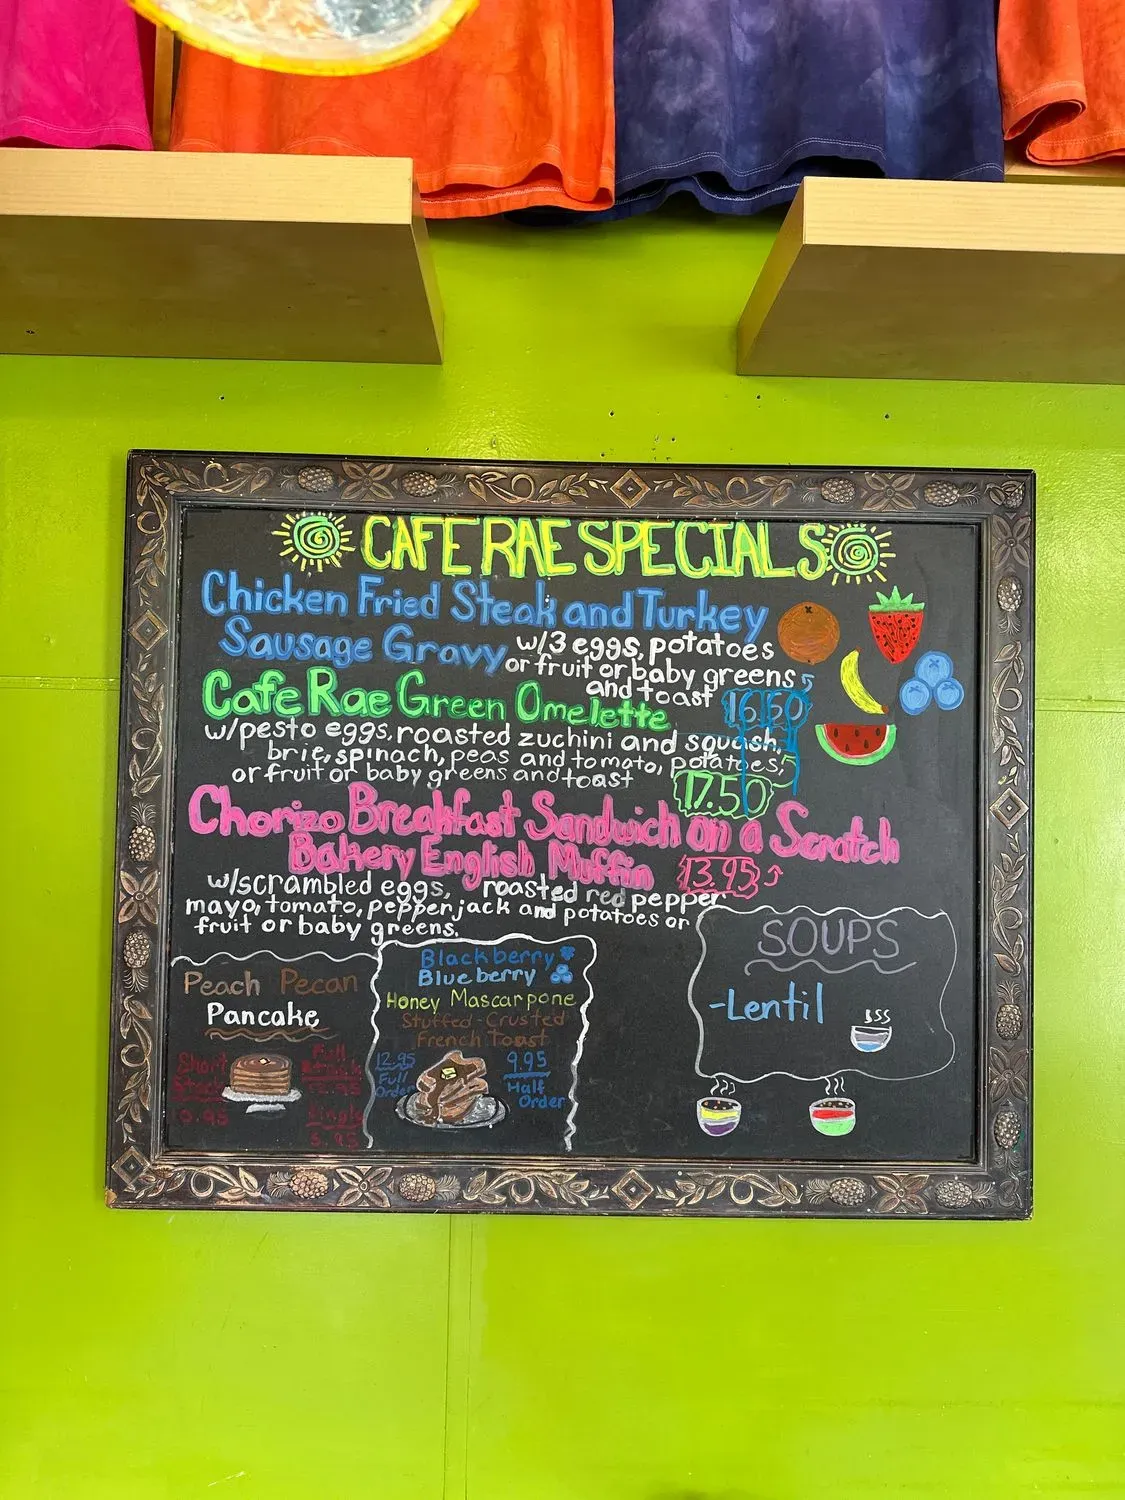 CAFE RAE SPECIALS
Chicken Fried Steak and Turkey
Sausage Gravy w/3 eggs, potatoes
or fruit or baby greens
and toast 16.50
Cafe Rae Green Omelette
w/pesto eggs, roasted zuchini and squash,
brie, spinach, peas and tomato, potatoes,
or fruit or baby greens and toast
17.50
Chorizo Breakfast Sandwich on a Scratch
Bakery English Muffin 13.95
w/scrambled eggs, roasted red pepper
mayo, tomato, pepperjack and potatoes or
fruit or baby greens.
Peach Pecan
Pancake
Short
Stack
10.95
Full
Stack
Single
5.95
Blackberry
Blueberry
Honey Mascarpone
Stuffed-Crusted
French Toast
12.95
Full
Order
9.95
Half
Order
SOUPS
-Lentil